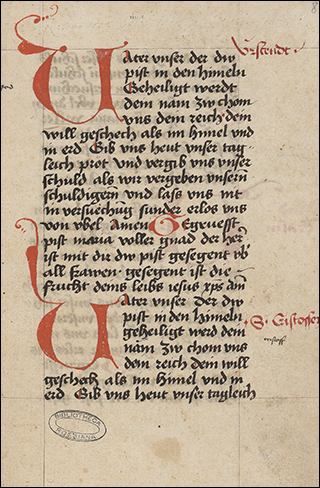 Vrstendt
Vater vnser der dw
pist in den himeln
Geheiligt werdt
dein nam zw chom
vns dein reich dein
will geschech als im himel vnd
in erd Gib vns heut vnser tag-
leich prot vnd vergib vns vnser
schuld als wir vergeben vnsern
schuldigern vnd lass vns nit
in versuechug sunder erlos vns
von vbel Amen Gegruesst
pist maria voller gnad der her
ist mit dir dw pist gesegent vb
all frawen · gesegent ist die
frucht deins leibs iesus xps am
Vater vnser der dw
pist in den himeln
geheiligt werd dein
nam zw chom vns
dein reich dein will
geschech als im himel vnd in
erd Gib vns heut vnser tagleich
S. Cristoffer
BIBLIOTHECA
ROSSIANA